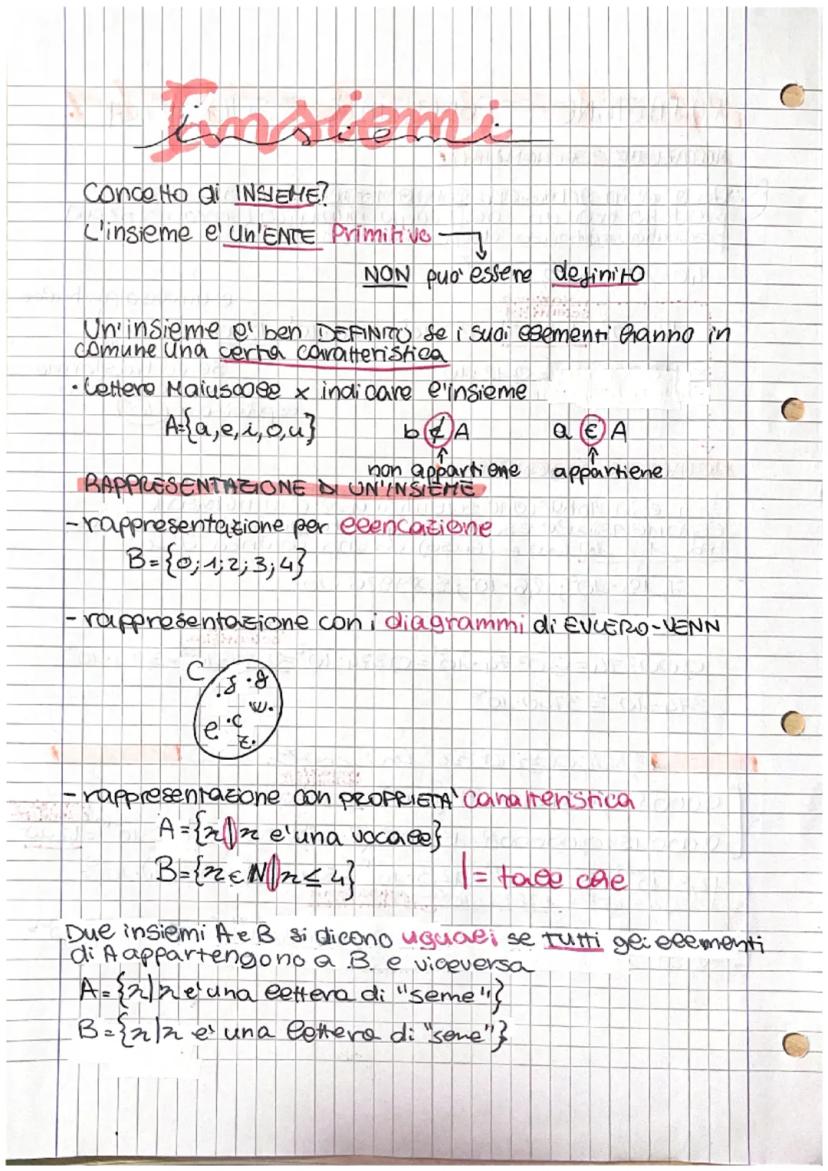 Insiemi
insiemi
Concetto di INSIEME?
L'insieme e' un'ENTE Primitivo
NON puo' essere definito
Un'insieme e' ben DEFINITO se i suoi elementi hanno in
comune una certa caratteristica
• Lettere Maiuscole x indicare l'insieme
A={a,e,i,o,u} b ∉ A a ∈ A
non appartiene appartiene
RAPPRESENTAZIONE DI UN'INSIEME
- rappresentazione per elencazione
B={0;1;2;3;4}
- rappresentazione con i diagrammi di EULERO-VENN
C
e
- rappresentazione con PROPRIETA' caratteristica
A={x|x e' una vocale}
B={x∈N|x≤4} |= tale che
Due insiemi A e B si dicono uguali se tutti gli elementi
di A appartengono a B e viceversa
A={x|x e' una lettera di "seme"}
B={x|x e' una lettera di "sene"}